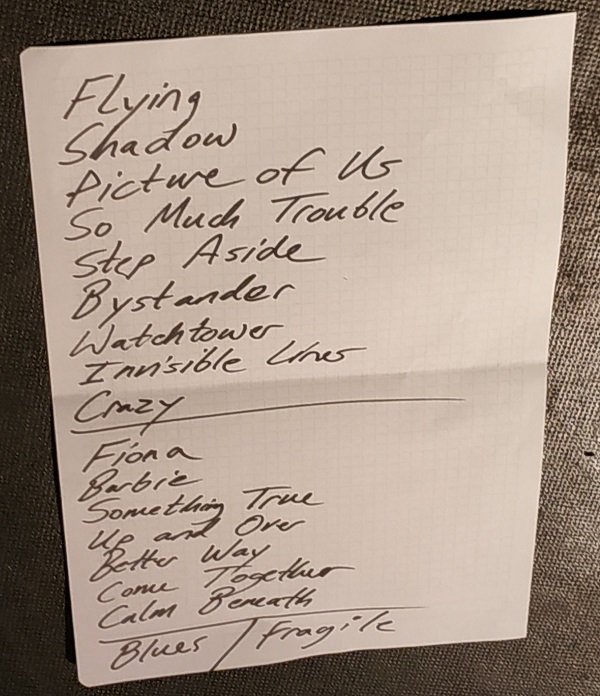 Flying
Shadow
Picture of Us
So Much Trouble
Step Aside
Bystander
Watchtower
Invisible Lines
Crazy
Fiona
Barbie
Something True
Up and Over
Better Way
Come Together
Calm Beneath
Blues / Fragile